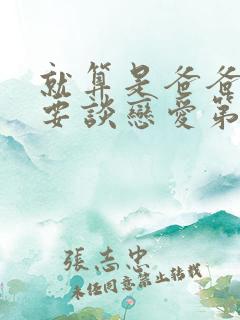 就算是爸爸
要談戀愛第
張志忠
未經同意禁止轉載